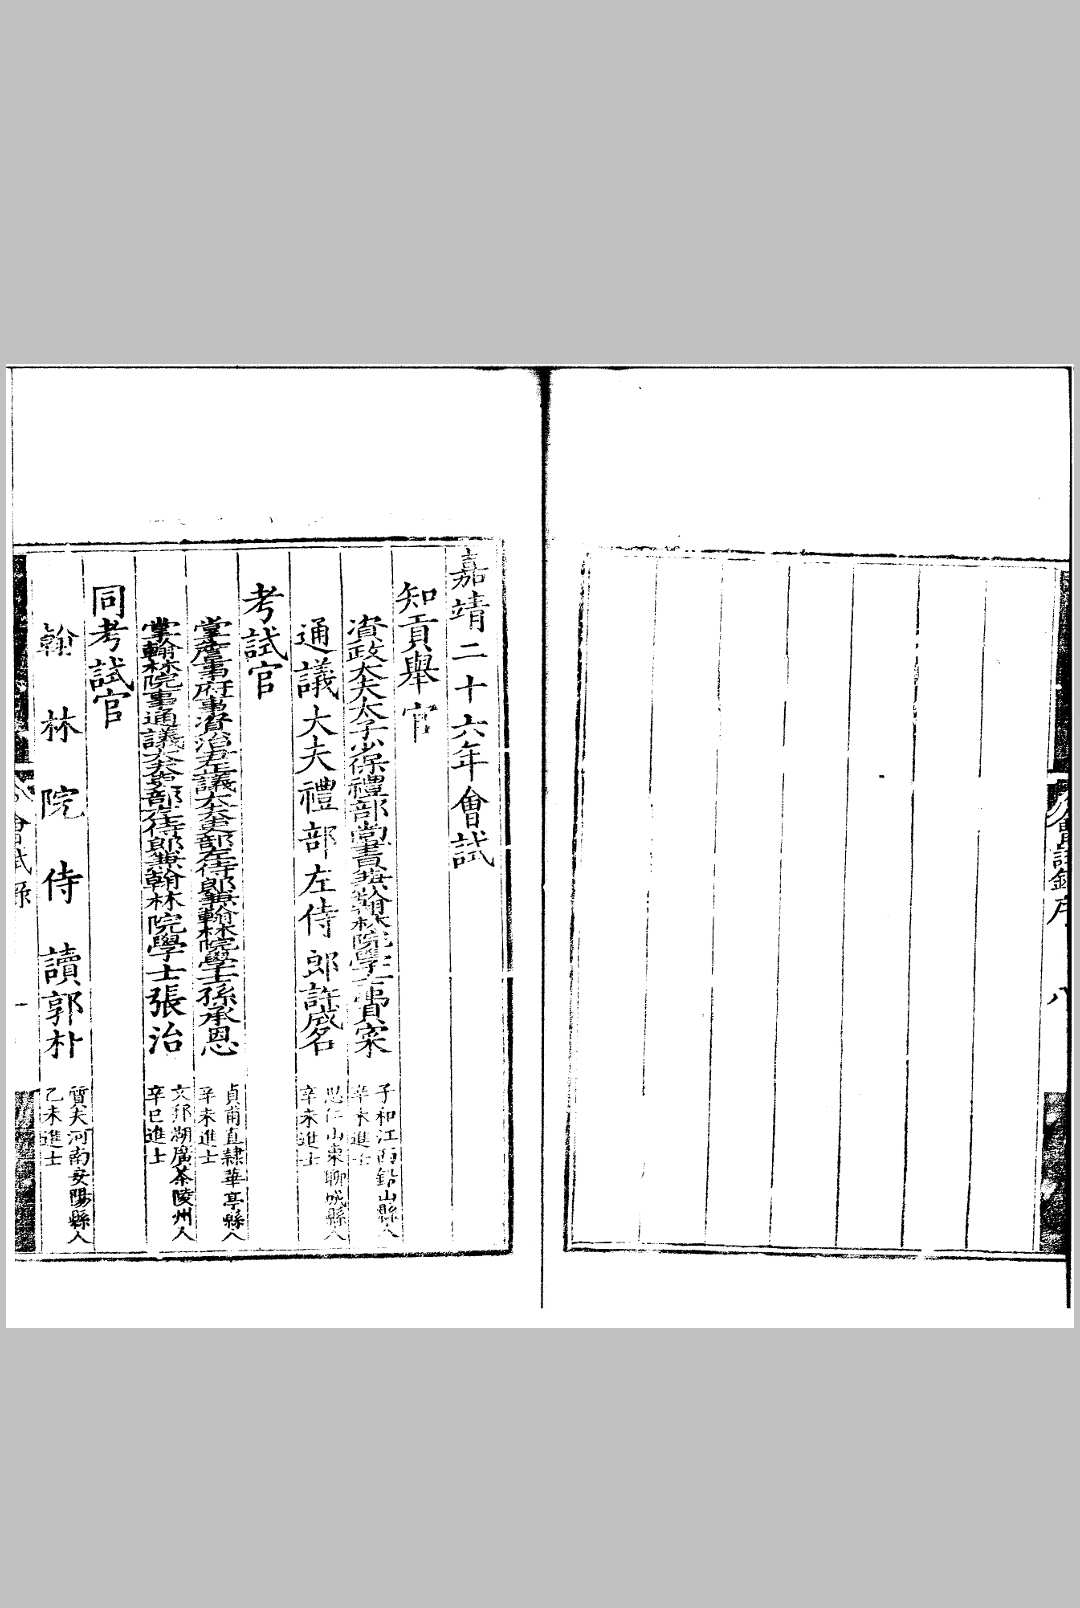 會試錄序
八
嘉靖二十六年會試
知貢舉官
資政大夫太子少保禮部尚書兼翰林院學士費寀
子和江西鉛山縣人
辛未進士
通議大夫禮部左侍郎許成名
思仁山東聊城縣人
辛未進士
考試官
掌詹事府事資治尹正議大夫吏部左侍郎兼翰林院學士孫承恩
貞甫直隸華亭縣人
辛未進士
掌翰林院事通議大夫吏部左侍郎兼翰林院學士張治
文邦湖廣茶陵州人
辛巳進士
同考試官
翰林院侍讀郭朴
質夫河南安陽縣人
乙未進士
會試錄
一